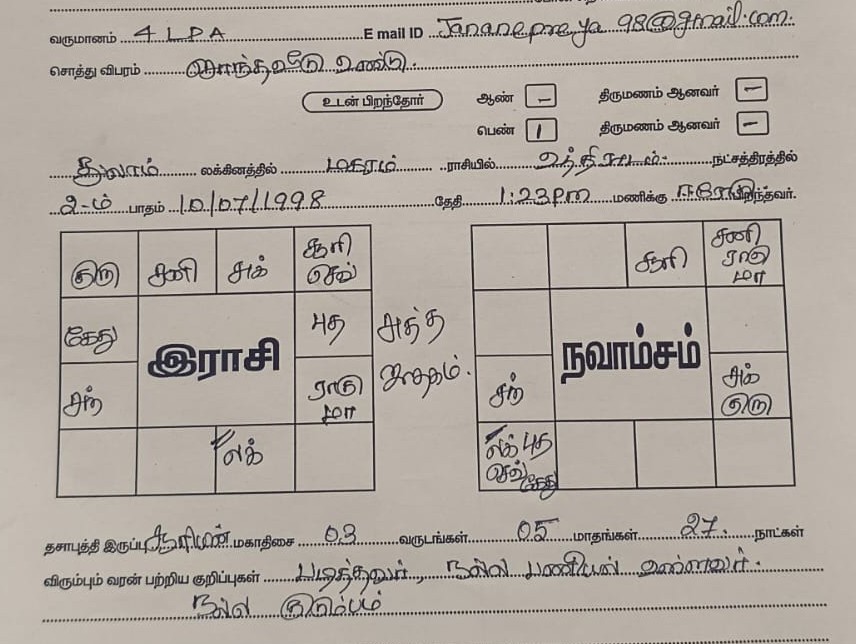 வருமானம் 4 LPA E mail ID Jananepreya 98@gmail.com.
சொத்து விபரம் சொந்தவீடு உண்டு.
உடன் பிறந்தோர் ஆண் – திருமணம் ஆனவர் –
பெண் 1 திருமணம் ஆனவர் –
துலாம் லக்கினத்தில் மகரம் ராசியில் உத்திராடம். நட்சத்திரத்தில்
2-ம் பாதம் 10/07/1998 தேதி 1:23PM மணிக்கு ஈரோடு பிறந்தவர்.
குரு சனி சுக் சூரி செவ்
கேது இராசி புத
சந் ராகு மா
லக்
சுத்த ஜாதகம்.
சூரி சனி ராகு மா
நவாம்சம்
சந் சுக் குரு
லக் புத செவ் கேது
தசாபுத்தி இருப்பு சூரியன் மகாதிசை 03 வருடங்கள் 05 மாதங்கள் 27. நாட்கள்
விரும்பும் வரன் பற்றிய குறிப்புகள் படித்தவர், நல்ல பணியில் உள்ளவர்.
நல்ல குடும்பம்